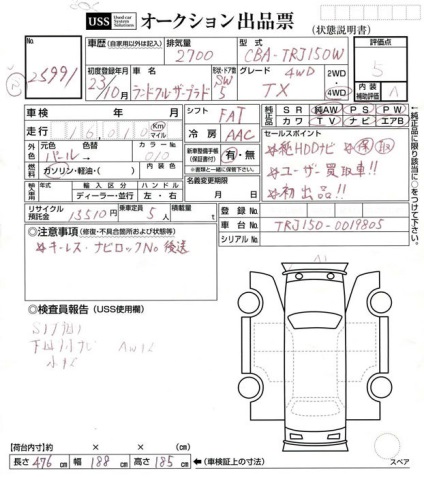 USS Used car System Solutions オークション出品票 (状態説明書)
No. 25991
車歴 (自家用以外は記入) 排気量 2700 型式 CBA-TRJ150W 評価点 5
初度登録年月 23/10 車名 ランドクルーザープラド 形状・ドア数 SW 5 グレード 4WD TX 2WD・4WD 内装補助評価 A
車検 年 月 シフト FAT 純正品 SR 純AW PS PW
カワ TV ナビ エアB
走行 Km マイル 冷房 AAC
外色 元色 パール→ 色替 カラーNo. 070 新車整備手帳(保証書付) 有・無
※書類と一緒に保管
燃料 ガソリン・軽油・( ) 内装色
輸入車 輸入区分 ディーラー・並行 ハンドル 左・右 名義変更期限 月 日
セールスポイント
☆純HDDナビ ☆保 取
☆ユーザー買取車!!
☆初出品!!
←純正品に限り該当に○をつけて下さい。
リサイクル預託金 13510円 乗車定員 5人 積載量 t
登録No.
車台No. TRJ150-0019805
シリアルNo.
◎注意事項 (修復・不具合箇所および状態等)
☆キーレス・ナビロックNo後送
◎検査員報告 (USS使用欄)
A1
【荷台内寸】 × × (cm)
長さ 476 cm 幅 188 cm 高さ 185 cm ←(車検証上の寸法)
スペア